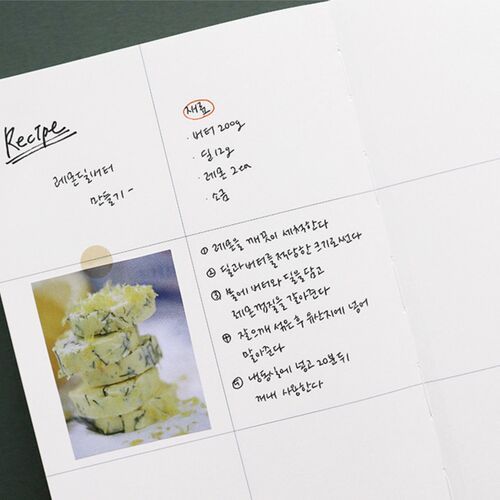 Recipe
레몬딜버터
만들기-
재료
· 버터 200g
· 딜 12g
· 레몬 2ea
· 소금
① 레몬을 깨끗이 세척한다
② 딜과 버터를 적당한 크기로 썬다
③ 볼에 버터와 딜을 담고
레몬껍질을 갈아준다
④ 잘으깨 섞은 후 유산지에 넣어
말아준다
⑤ 냉동실에 넣고 20분 뒤
꺼내 사용한다